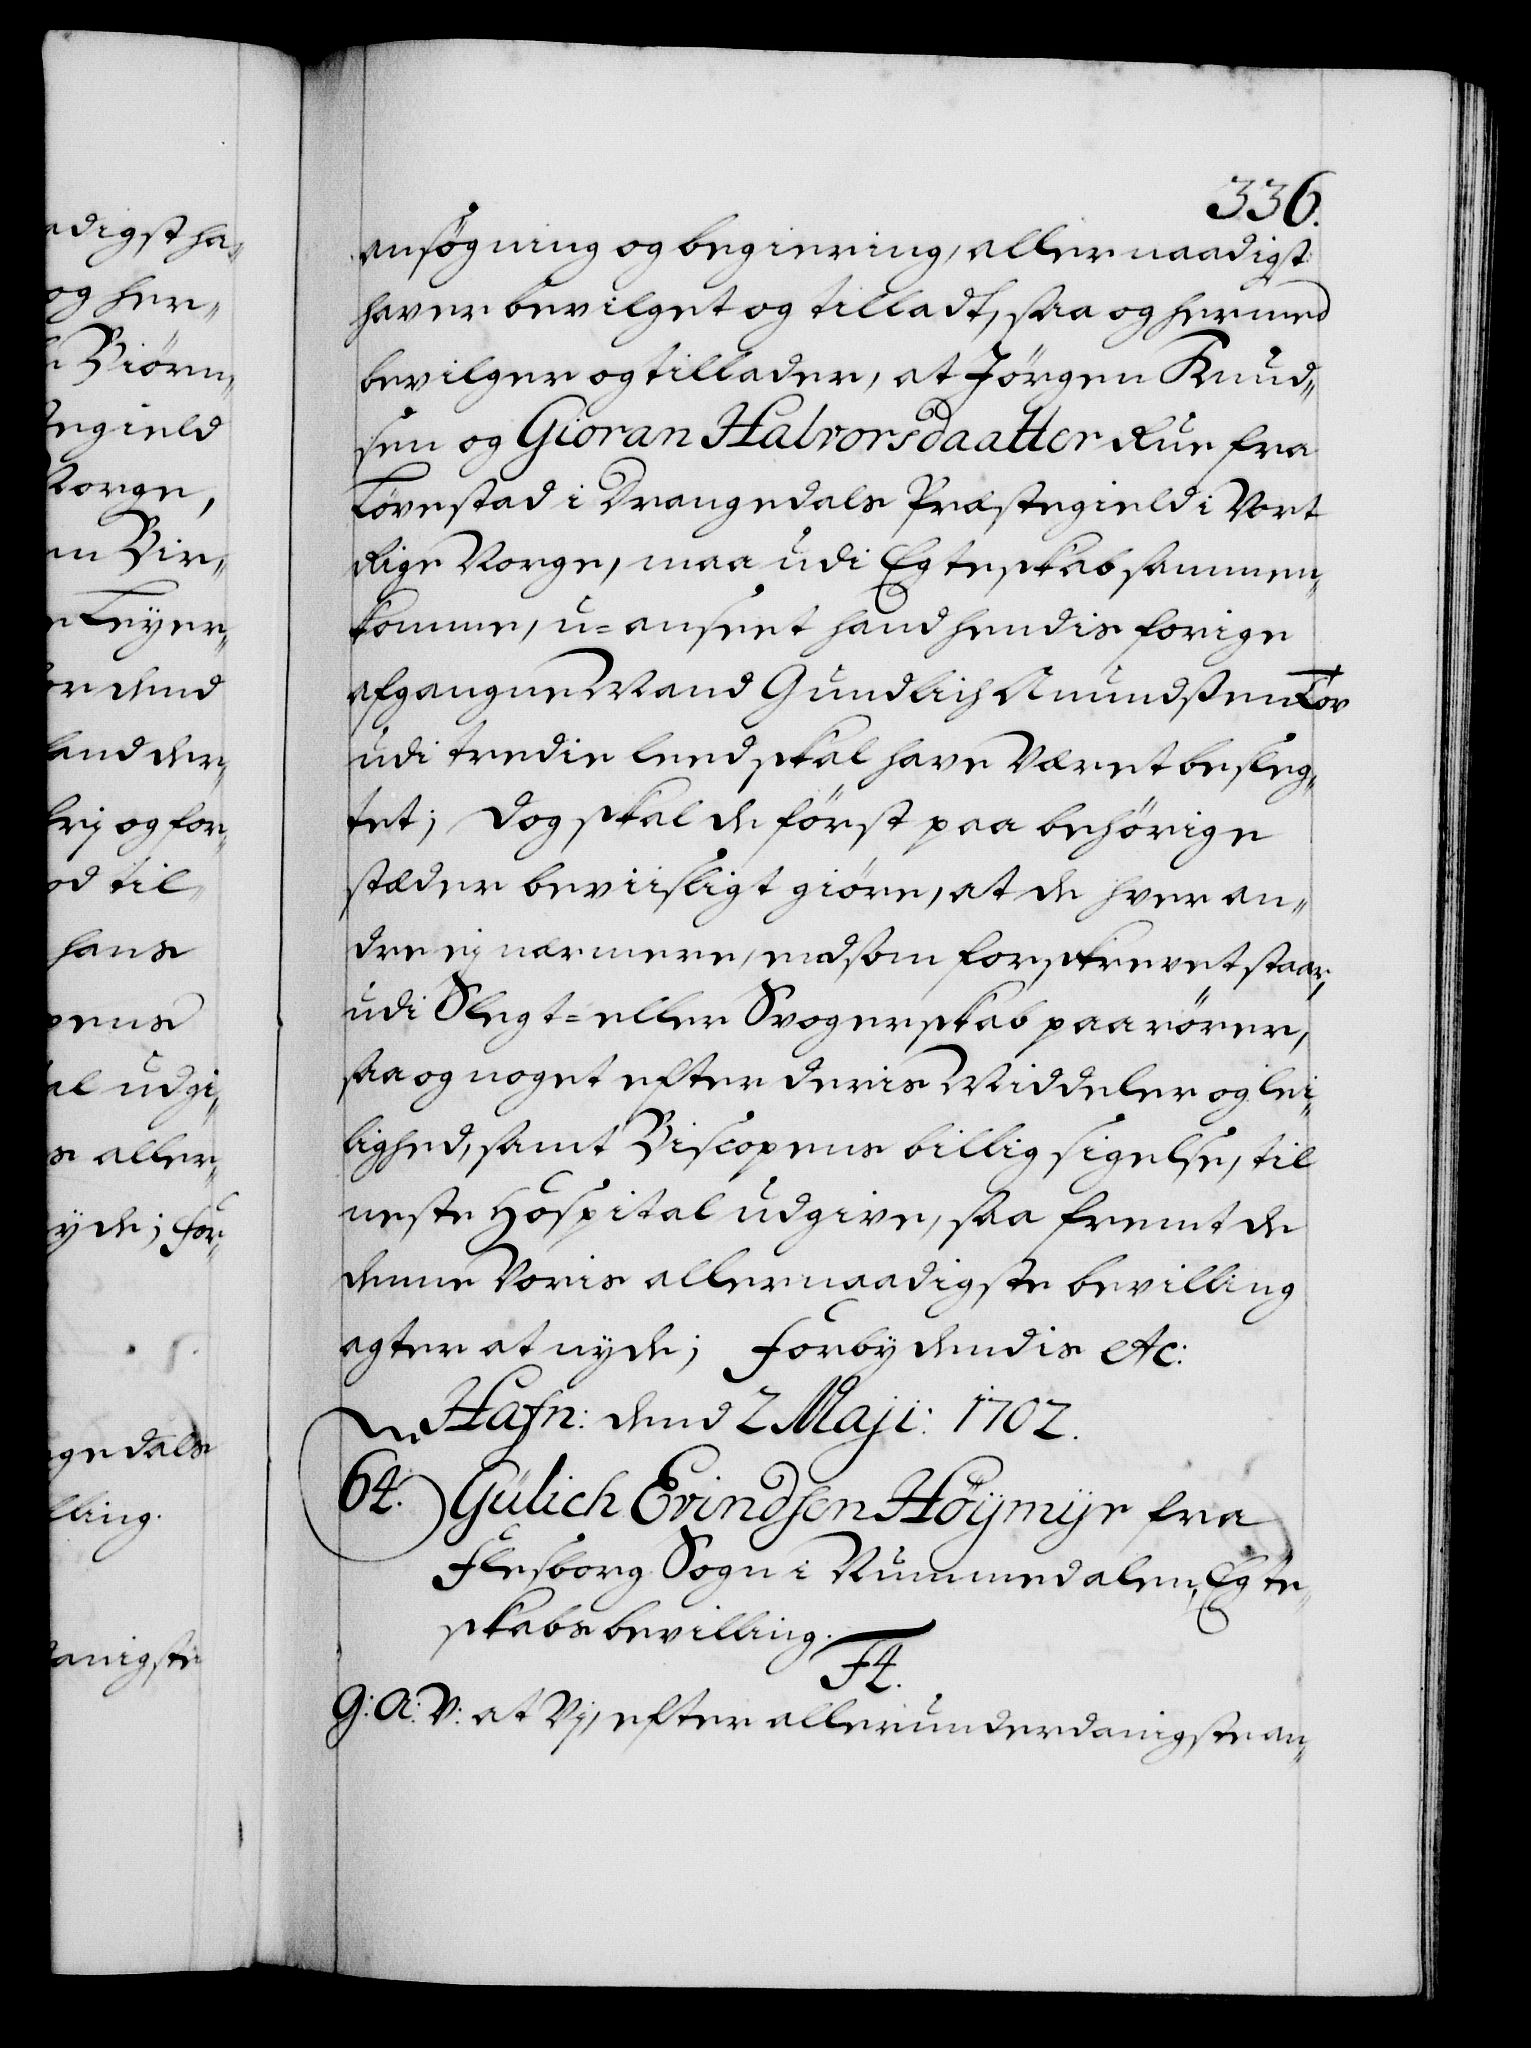 adigst ha,,
og her,,
Biörn,,
tegield
Norge,
en Bir,,
e Leyer,,
for dend
land der,,
krij og for,,
od til,,
hans
pens
al udgi,,
s aller,,
yde; for,,
gedals
lling.
danigste
336.
ansögning og begiering, allernaadigst
haver bevilget og tilladt, saa og hermed
bevilger og tillader, at Jörgen Knud,,
sen og Gioran Halvorsdaatter Rue fra
Tövestad i Drangedals Præstegield i Vort
Rige Norge, maa udi Egteskab sammen,,
komme, u=anseet hand hendis forige
afgangne Mand Gundlich Amundssen Tov
udi tredie leed skal have Været besleg,,
tet; Dog skal de först paa behörige
stæder beviisligt giöre, at de hver an,,
dre ej nærmere, end som forskrevet staar,
udi Slegt= eller Svogerskab paarörer,
saa og noget efter deris Middeler og lei,,
lighed, samt Biscopens billig sigelse, til
neste Hospital udgive, saa fremt de
denne Voris allernaadigste bevilling
agter at nyde; Forbydendis etc:
Hafn: dend 2 Maji: 1702.
64. Gülich Evindsen Höÿmÿr fra
Flesborg Sogn i Nummedalen, Egte,,
skabs bevilling.
F4.
G: A: V: at Vj, efter allerunderdanigste an,,